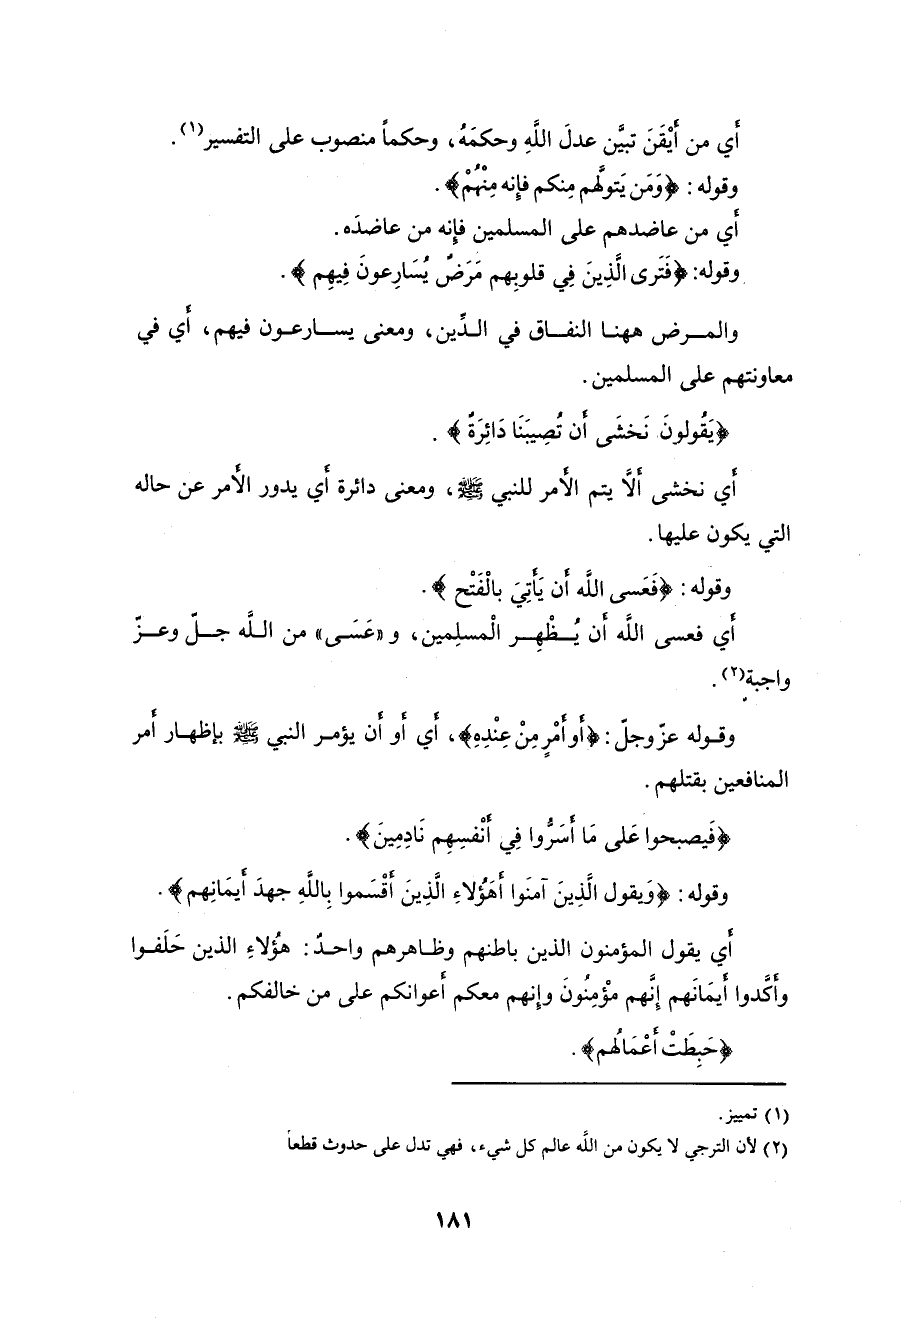 أَي من أَيْقَنَ تبيَّن عدلَ اللَّهِ وحكمَهُ، وحكماً منصوب على التفسير(١).
وقوله: ﴿وَمَن يَتولَّهم مِنكم فإِنه مِنْهُمْ﴾.
أَي من عاضدهم على المسلمين فإِنه من عاضدَه.
وقوله: ﴿فَتَرى الَّذِينَ فِي قلوبِهم مَرَضٌ يُسَارِعونَ فِيهِم﴾.
والمـرض ههنـا النفـاق في الـدِّين، ومعنى يسـارعـون فيهم، أَي في
معاونتهم على المسلمين.
﴿يَقُولونَ نَخشَى أَن تُصِيبَنَا دَائِرَةٌ﴾.
أَي نخشى أَلَّا يتم الأَمر للنبي ﷺ، ومعنى دائرة أَي يدور الأَمر عن حاله
التي يكون عليها.
وقوله: ﴿فَعَسى اللَّه أَن يَأْتِيَ بالْفَتْح﴾.
أَي فعسى اللَّه أَن يُـظْهِـر الْمسلِمين، و «عَسَى» من اللَّه جـلّ وعـزّ
واجبة(٢).
وقـوله عزّ وجلّ: ﴿أَو أَمْرٍ مِنْ عِنْدِهِ﴾، أَي أَو أَن يؤمـر النبي ﷺ بإِظهـار أَمر
المنافعين بقتلهم.
﴿فَيصبحوا عَلى مَا أَسَرُّوا فِي أَنْفسِهِم نَادِمِينَ﴾.
وقوله: ﴿وَيقول الَّذِينَ آمنَوا أَهَؤُلاءِ الَّذِينَ أَقْسَموا بِاللَّهِ جهدَ أَيمَانِهم﴾.
أَي يقول المؤمنون الذين باطنهم وظـاهرهم واحـدٌ: هؤُلاءِ الذين حَلَفـوا
وأَكَّدوا أَيمَانَهم إِنَّهم مؤْمِنُونَ وإِنهم معكم أَعوانكم على من خالفكم.
﴿حَبِطَتْ أَعْمَالُهم﴾.
(١) تمييز.
(٢) لأن الترجي لا يكون من اللَّه عالم كل شيء، فهي تدل على حدوث قطعاً
١٨١